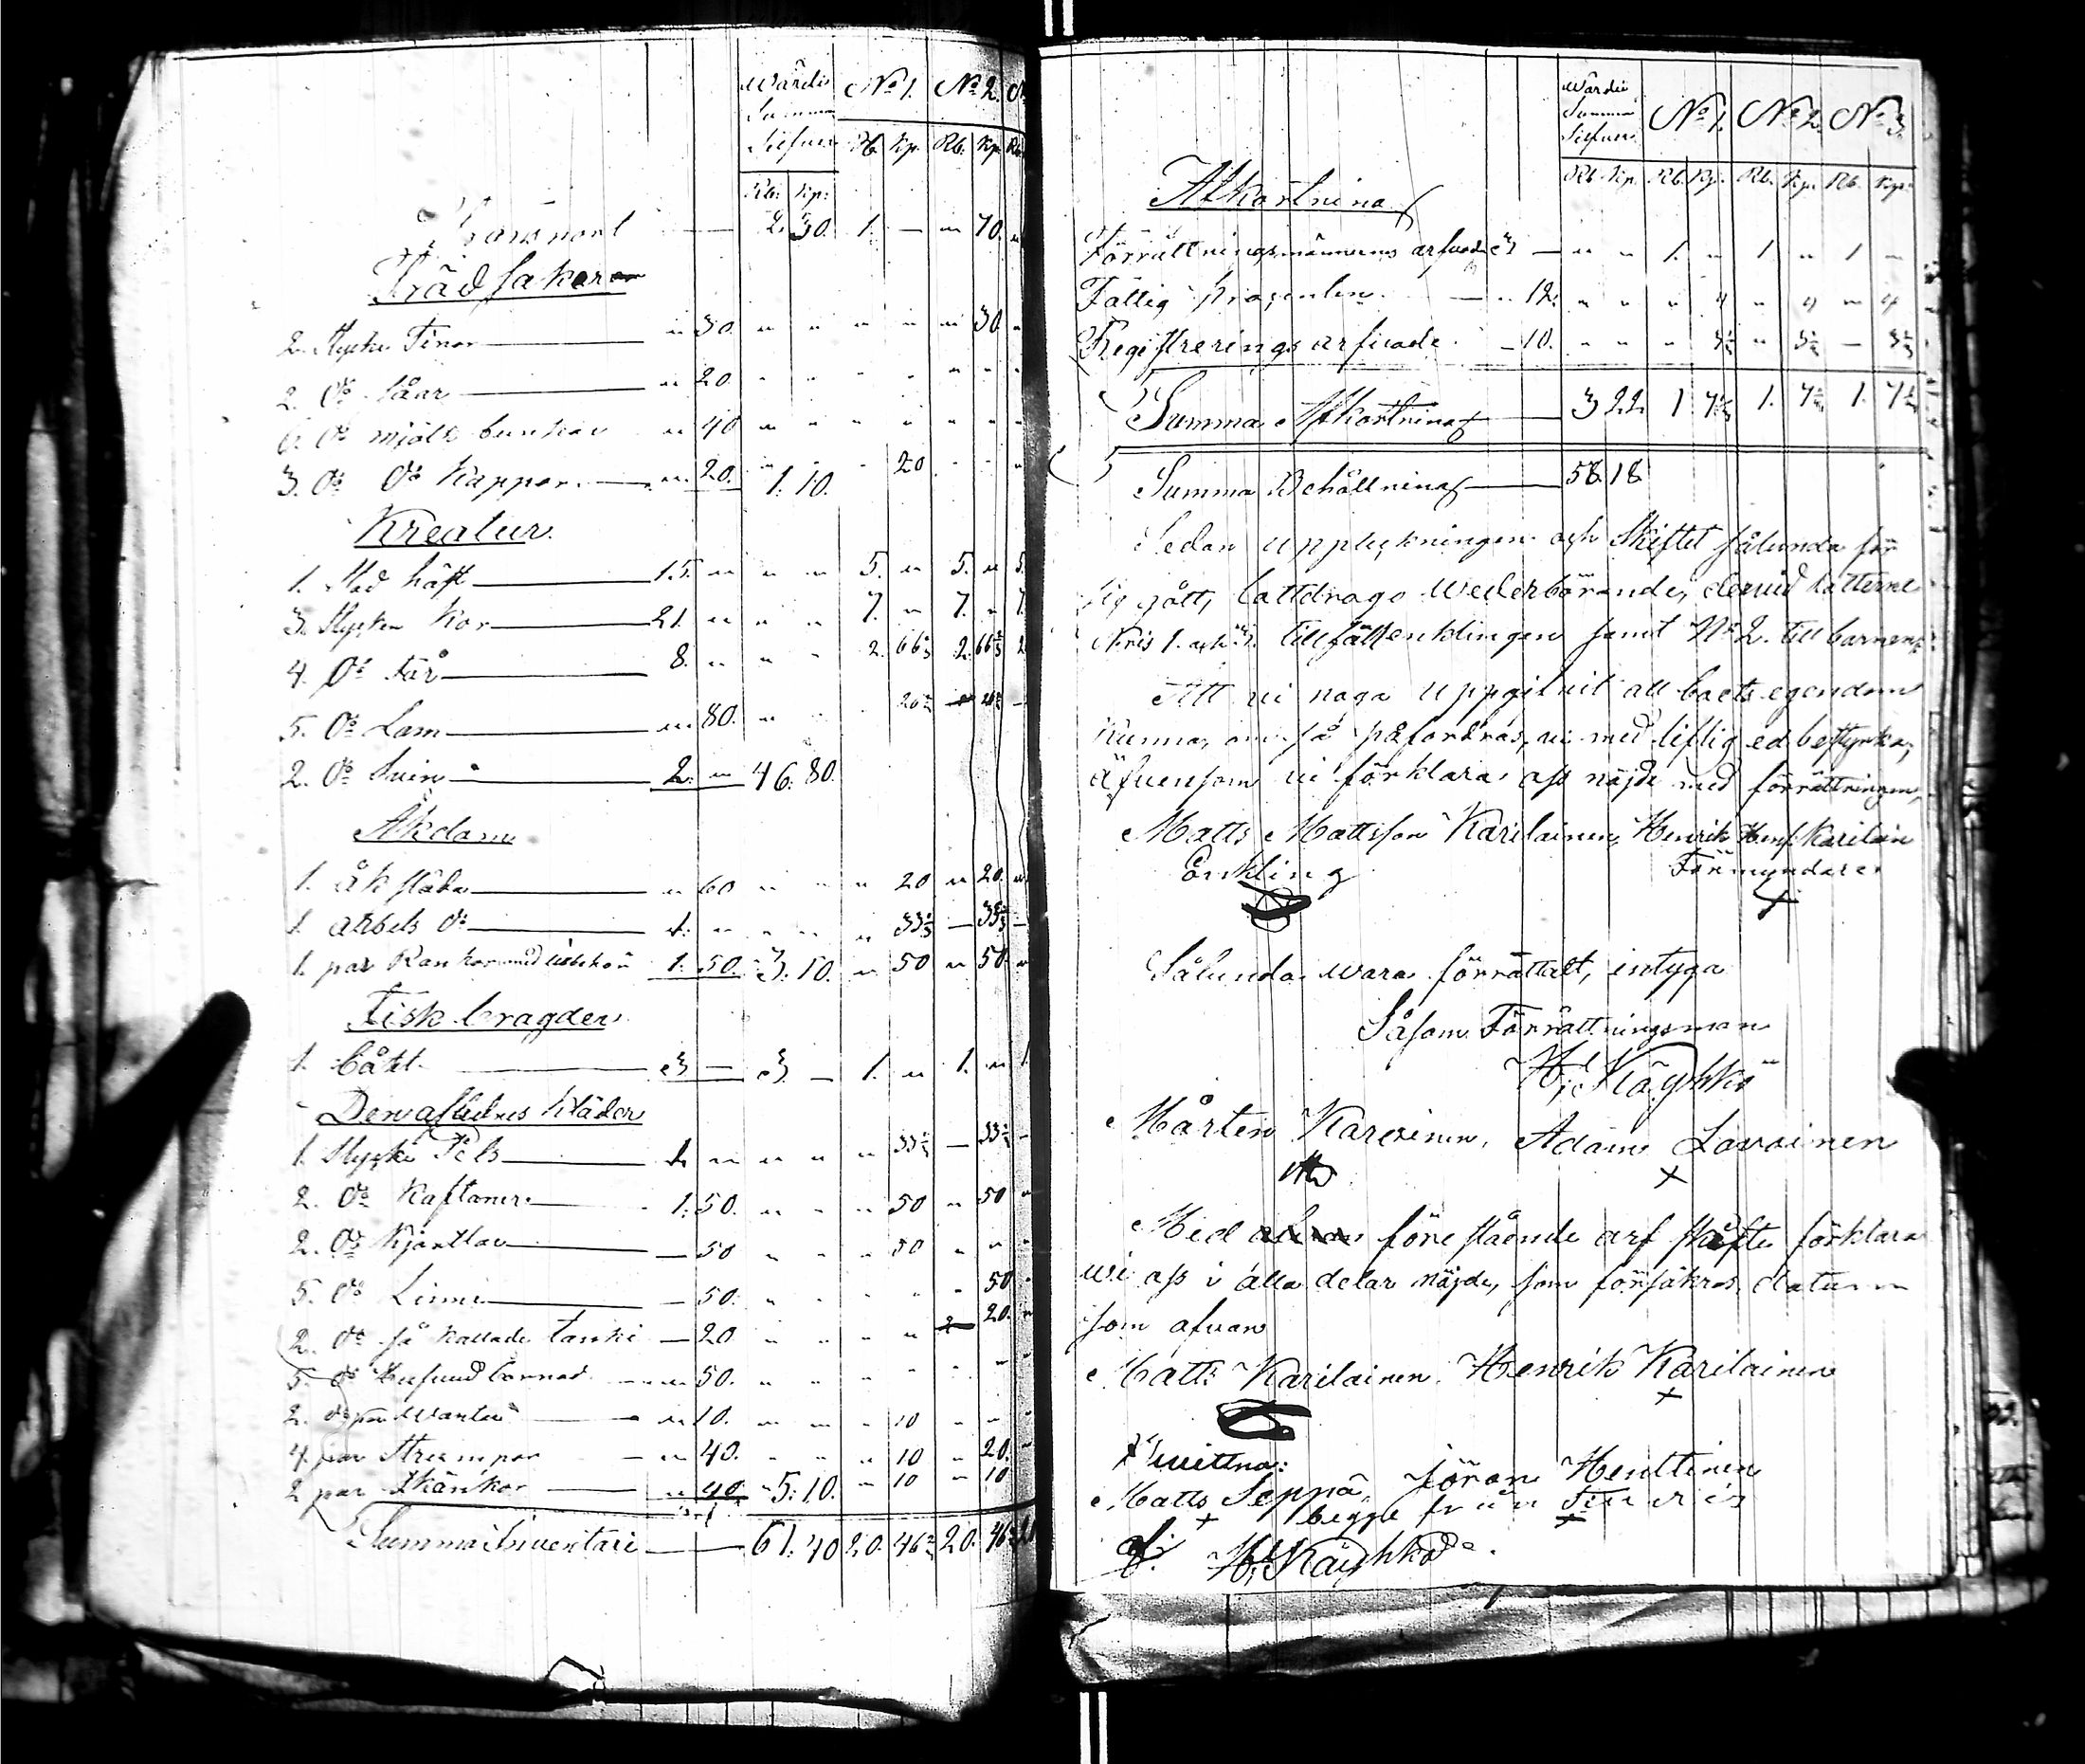 Wärdie Summa Silfver No 1. No 2. N
Rb. Kp. Rb. Kp. Rb
Rb: Kp:
Transport — 2. 30. 1. — " 70. "
Trädsaker
2. Stycke Tinor — " 30. " " " " " 30. "
2. Do såar — " 20. " " " " " " "
6. Do mjölk bunkar " 40 " " " " " " "
3. Do Do Kappor — " 20. 1. 10. " 20 " " "
Kreatur.
1. Stod häst — 15. " " " 5. " 5. " 5.
3. Stycken Kor — 21. " " " 7. " 7. " 7.
4. Do får — 8. " " " 2. 66⅔ 2. 66⅔ 2
5. Do Lam — " 80. " " " 26⅔ — 26⅔ —
2. Do Svin — 2. " 46. 80.
Åkdon
1. åk släda — " 60 " " " 20 " 20. "
1. arbets do — 1. " " " " 33⅓ — 33⅓ —
1. par Rankor med — 1. 50. 3. 10. " 50 " 50. "
Fisk bragder
1. båt — 3 — 3. — 1. " 1. " 1
Den aflednes kläder
1. Stycke Pels — 1. " " " " 33⅓ — 33⅓ —
2. Do Kaftaner — 1. 50. " " " 50 " 50 "
2. Do Kjortlar — 50 " " " 50 " " "
5. Do Linne — 50. " " " " " 50 "
2. Do så kallade tanki — 20 " " " " 20. "
5. Do Hufvud bonad — 50. " " " " " "
2. do par Wantar — " 10. " " " 10 " " "
4. par Strumpor — " 40. " " " 10 " 20. "
2 par Skänkor — " 40. 5. 10. " 10 " 10
Summa Inventarii — 61. 40 20. 46⅔ 20. 46⅔
Wärdie Summa Silfver No 1. No 2. No 3.
Rb. Kp. Rb. Kp. Rb. Kp. Rb. Kp.
Afkortning
Förrättningsmännens arfvode 3 — " " 1. " 1 " 1 —
Fattig procenten — " 12. " " " 4 " 4 " 4
Registrerings arfvode — 10. " " " 3⅓ " 3⅓ — 3⅓
Summa Afkortning — 3 22 1 7⅓ 1. 7⅓ 1. 7⅓
Summa Behållning — 58 18
Sedan uppteckningen och Skiftet sålunda för
sig gått, lottdrogo Wederbörande, dervid lotterne
Nris 1. och 3. tillföll enklingen samt No 2. till barnen
Att vi noga uppgifvit all boets egendom
kunna, om så påfordras, vi med liflig ed bestyrka,
äfvensom vi förklara oss nöjde med förrättningen,
Matts Mattsson Karilainen, Henrik Henr. Karilain
Enkling Förmyndare
x
Sålunda vara förrättatt, intyga
Såsom Förrättningsman
H. Käyhkö
Mårten Karvinen, Adam Lavainen
x
Med före stående arf skifte förklara
wi oss i alla delar nöjde, som försäkras, datum
som ofvan
Matts Karilainen. Henrik Karilainen
x
Wittna:
Matts Seppä, Jöran Henttinen
x begge från x
H. Käyhkö